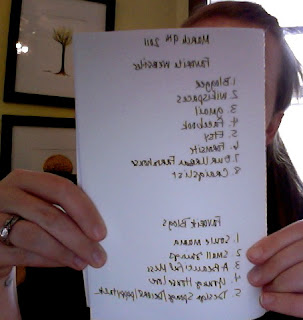 March 9th 2011
Favorite Websites
1. Blogger
2. Wikispaces
3. gmail
4. Facebook
5. Etsy
6.
7. Urban
8. Craigslist
Favorite Blogs
1. Soule Mama
2. Small Things
3. A Beautiful Mess
4. Young House Love
5. Design Sponge/Decor8/poppytalk